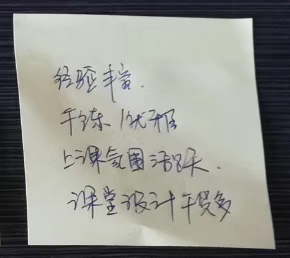 经验丰富.
干练 优雅
上课氛围活跃.
课堂设计干货多